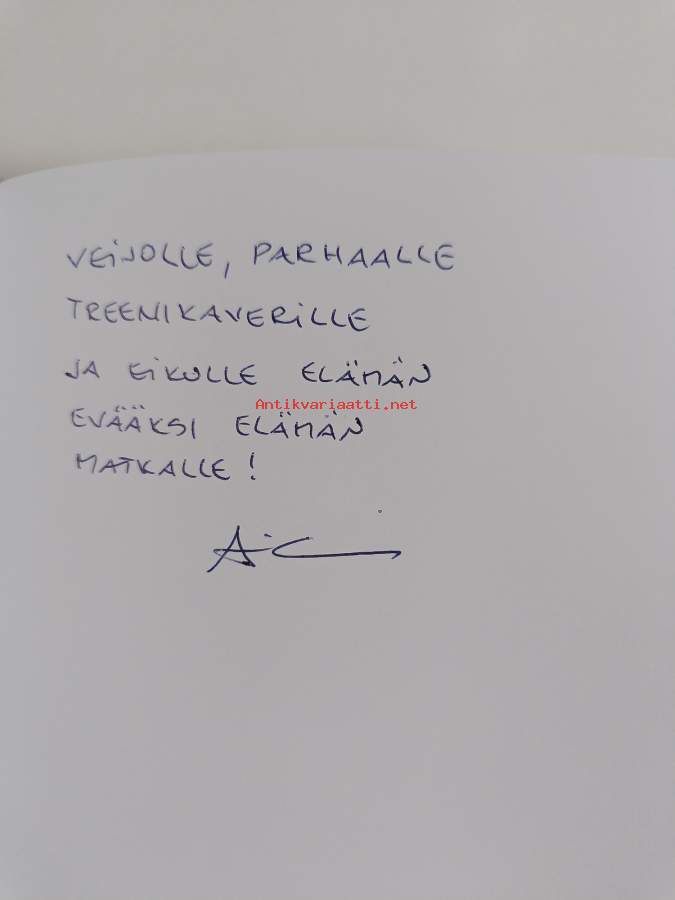 VEIJOLLE, PARHAALLE
TREENIKAVERILLE
JA EIKULLE ELÄMÄN
Antikvariaatti.net
EVÄÄKSI ELÄMÄN
MATKALLE!